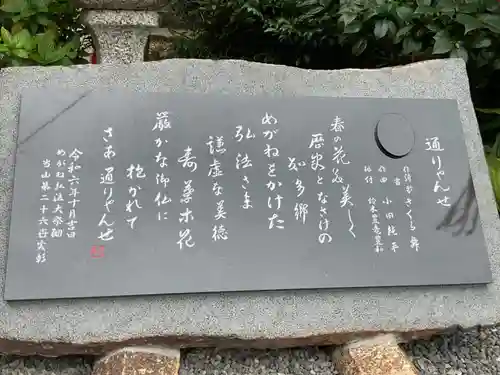 通りゃんせ
作詞者 さくら舞
書
作曲 小田純平
春の花が美しく
歴史となさけの
知多郷
めがねをかけた
弘法さま
謙虚な美徳
寿草木花
厳かな御仏に
抱かれて
さあ通りゃんせ
令和六年十月吉日
めがね弘法大祭翔
当山第二十六世